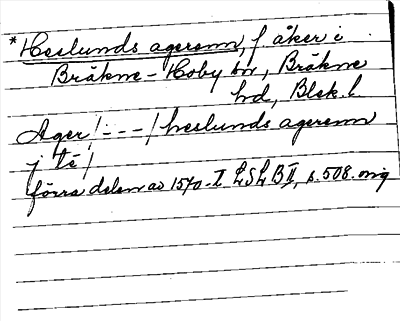 *Heslunds agerenn, f åker i
Bråkne-Hoby sn, Bråkne
hd, Blek. l
Ager /:--/ heslunds agerenn
j té /
förra delen av 1570-t LSLB II, s. 508. orig